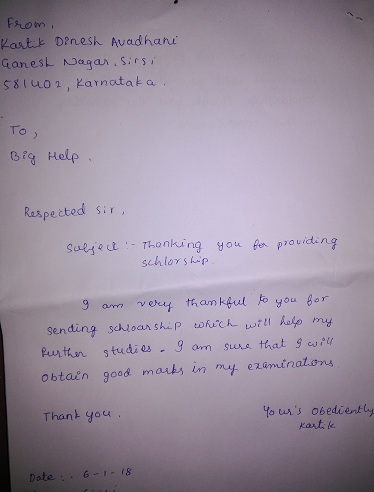 From,
Kartik Dinesh Avadhani
Ganesh Nagar, Sirsi
581402, Karnataka.
To,
Big Help.
Respected Sir,
Subject :- Thanking you for providing
schlorship.
I am very thankful to you for
sending schloarship which will help my
further studies. I am sure that I will
obtain good marks in my examinations.
Thank you.
Your's Obediently
Kartik
Date :- 6-1-18